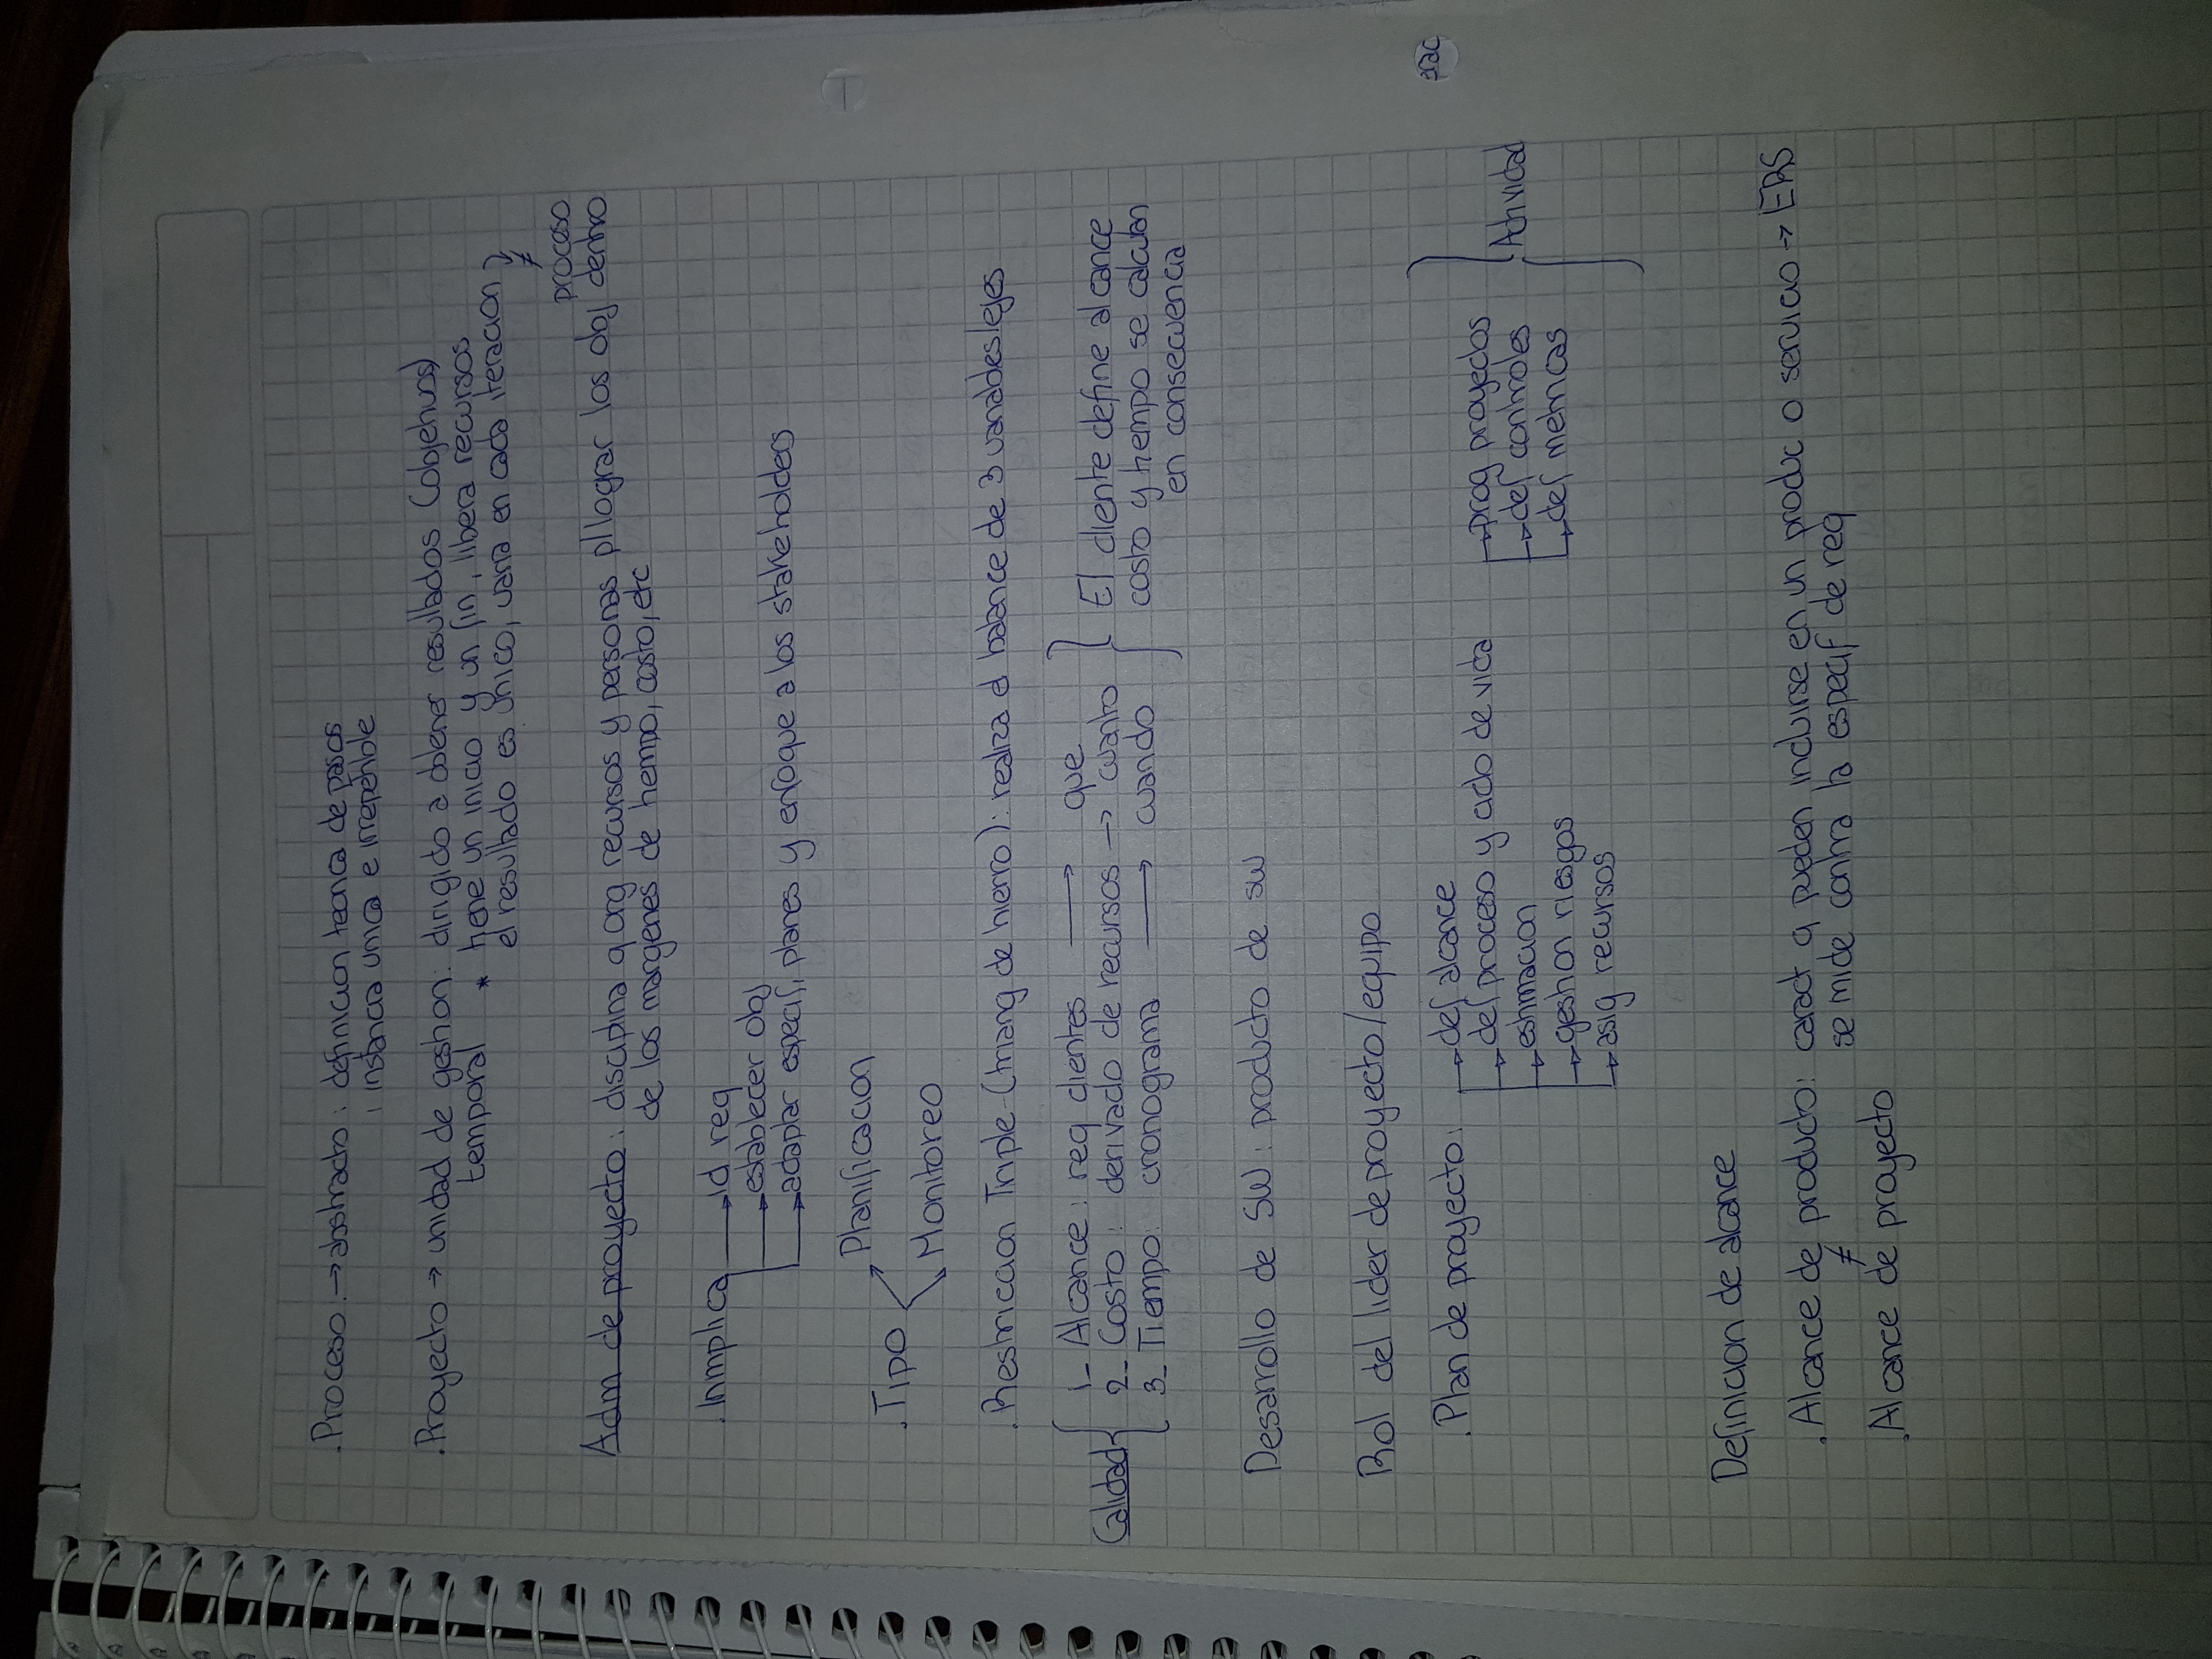 . Proceso. → abstracto : definicion teorica de pasos
: instancia unica e irrepetible
. Proyecto → unidad de gestion: dirigido a obtener resultados (objetivos)
temporal * tiene un inicio y un fin, libera recursos
el resultado es unico, varia en cada iteracion
≠
proceso
Adm de proyecto : disciplina q org recursos y personas p/lograr los obj dentro
de los margenes de tiempo, costo, etc
. Inmplica → id req
→ establecer obj
→ adaptar especif, planes y enfoque a los stakeholders
Planificacion
. Tipo
Monitoreo
. Restriccion Triple (triang de hierro): realiza el balance de 3 variables/ejes
1_ Alcance : req clientes → que
Calidad 2_ Costo : derivado de recursos → cuanto El cliente define alcance
3_ Tiempo: cronograma → cuando costo y tiempo se calculan
en consecuencia
Desarrollo de SW : producto de sw
Rol del lider de proyecto/equipo
. Plan de proyecto : → def alcance
→ def proceso y ciclo de vida → prog proyectos
→ estimacion → def controles Actividad
→ gestion riesgos → def metricas
→ asig recursos
Definicion de alcance
. Alcance de producto: caract q pueden incluirse en un produc o servicio → ERS
≠ se mide contra la especif de req
. Alcance de proyecto